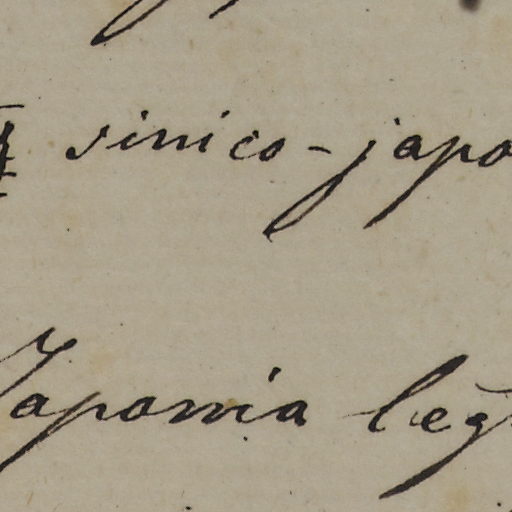 sinico-japo
Japonia leg